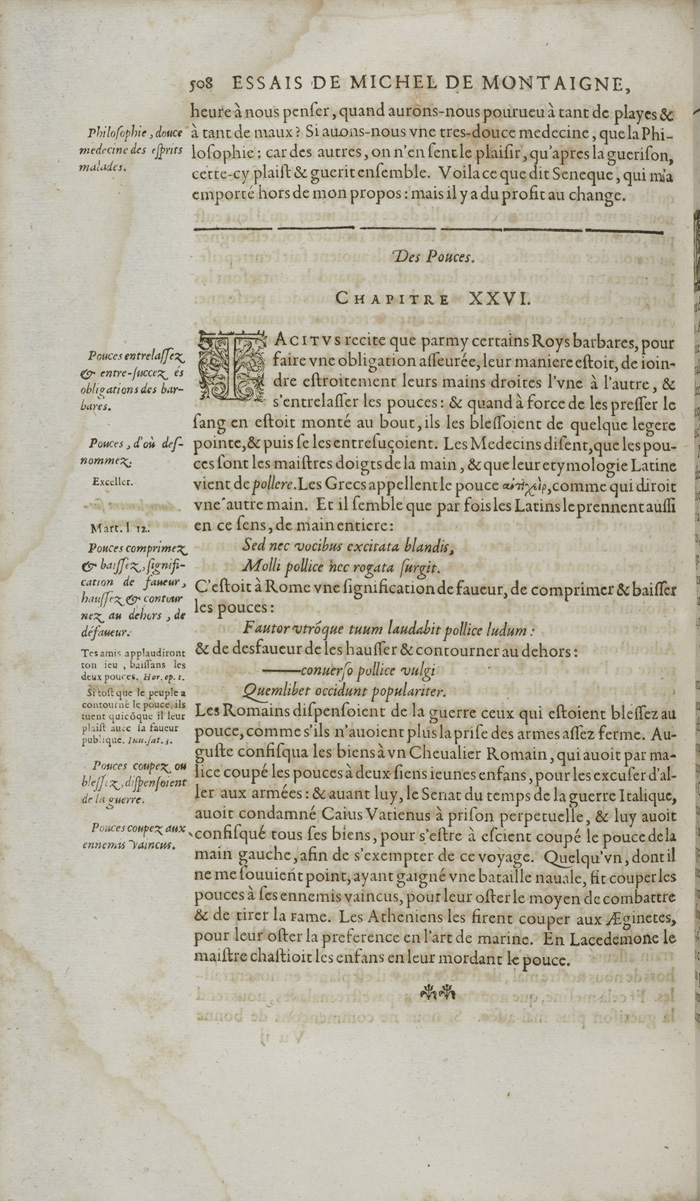 508 ESSAIS DE MICHEL DE MONTAIGNE,
heure à nous penſer, quand aurons-nous pourueu à tant de playes &
à tant de maux? Si auons-nous vne tres-douce medecine, que la Phi-
loſophie: car des autres, on n'en ſent le plaiſir, qu'apres la gueriſon,
cette-cy plaiſt & guerit enſemble. Voila ce que dit Seneque, qui m'a
emporté hors de mon propos: mais il y a du profit au change.
Philoſophie, douce
medecine des eſprits
malades.
Des Pouces.
CHAPITRE XXVI.
TACITVS recite que parmy certains Roys barbares, pour
faire vne obligation aſſeurée, leur maniere eſtoit, de ioin-
dre eſtroitement leurs mains droites l'vne à l'autre, &
s'entrelaſſer les pouces: & quand à force de les preſſer le
ſang en eſtoit monté au bout, ils les bleſſoient de quelque legere
pointe, & puis ſe les entreſuçoient. Les Medecins diſent, que les pou-
ces ſont les maiſtres doigts de la main, & que leur etymologie Latine
vient de pollere. Les Grecs appellent le pouce ἀντίχειρ, comme qui diroit
vne autre main. Et il ſemble que par fois les Latins le prennent auſſi
en ce ſens, de main entiere:
Sed nec vocibus excitata blandis,
Molli pollice nec rogata ſurgit.
C'eſtoit à Rome vne ſignification de faueur, de comprimer & baiſſer
les pouces:
Fautor vtróque tuum laudabit pollice ludum:
& de desfaueur de les hauſſer & contourner au dehors:
——conuerſo pollice vulgi
Quemlibet occidunt populariter.
Les Romains diſpenſoient de la guerre ceux qui eſtoient bleſſez au
pouce, comme s'ils n'auoient plus la priſe des armes aſſez ferme. Au-
guſte confiſqua les biens à vn Cheualier Romain, qui auoit par ma-
lice coupé les pouces à deux ſiens ieunes enfans, pour les excuſer d'al-
ler aux armées: & auant luy, le Senat du temps de la guerre Italique,
auoit condamné Caius Vatienus à priſon perpetuelle, & luy auoit
confiſqué tous ſes biens, pour s'eſtre à eſcient coupé le pouce de la
main gauche, afin de s'exempter de ce voyage. Quelqu'vn, dont il
ne me ſouuient point, ayant gaigné vne bataille nauale, fit couper les
pouces à ſes ennemis vaincus, pour leur oſter le moyen de combattre
& de tirer la rame. Les Atheniens les firent couper aux Æginetes,
pour leur oſter la preference en l'art de marine. En Lacedemone le
maiſtre chaſtioit les enfans en leur mordant le pouce.
Pouces entrelaſſez
& entre-ſuccez és
obligations des bar-
bares.
Pouces, d'où deſ-
nommez.
Exceller.
Mart. l 12.
Pouces comprimez
& baiſſez, ſignifi-
cation de faueur,
hauſſez & contour
nez au dehors, de
défaueur.
Tes amis applaudiront
ton ieu, baiſſans les
deux pouces. Hor. ep. 1.
Si toſt que le peuple a
contourné le pouce, ils
tuent quicõque il leur
plaiſt auec la faueur
publique. Iuu. ſat. 3.
Pouces coupez ou
bleſſez, diſpenſoient
de la guerre.
Pouces coupez aux
ennemis vaincus.